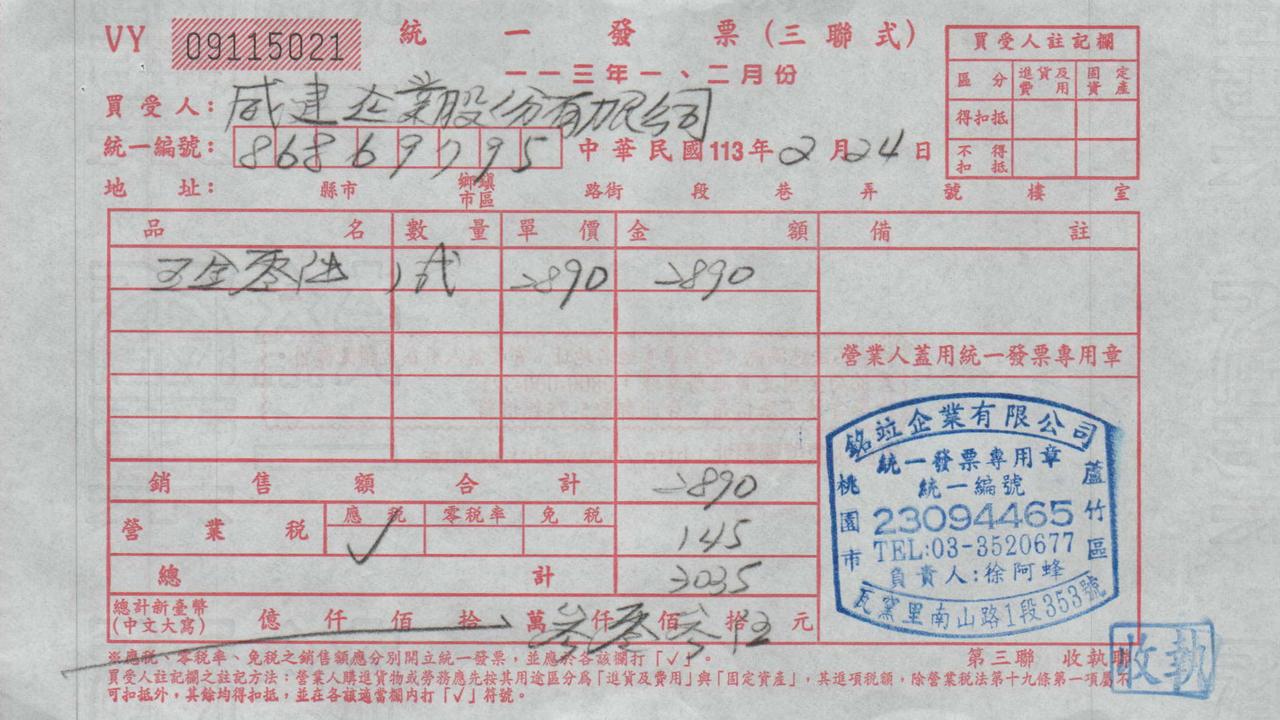 VY 09115021 統一發票(三聯式)
一一三年一、二月份
買受人註記欄
區分 進貨及費用 固定資產
得扣抵
不得扣抵
買受人:威建企業股份有限公司
統一編號:86869795 中華民國113年2月24日
地址: 縣市 鄉鎮市區 路街 段 巷 弄 號 樓 室
品名 數量 單價 金額 備註
五金零件 1式 2890 2890
營業人蓋用統一發票專用章
銷售額合計 2890
營業稅 應稅 ✓ 零稅率 免稅 145
總計 3035
總計新臺幣(中文大寫) 億 仟 佰 拾 萬 參仟零佰參拾伍元
銘竝企業有限公司
統一發票專用章
統一編號
23094465
TEL:03-3520677
負責人:徐阿蜂
桃園市
蘆竹區
瓦窯里南山路1段353號
※應稅、零稅率、免稅之銷售額應分別開立統一發票,並應於各該欄打「✓」。
第三聯 收執聯
收執
買受人註記欄之註記方法:營業人購進貨物或勞務應先按其用途區分為「進貨及費用」與「固定資產」,其進項稅額,除營業稅法第十九條第一項屬不
可扣抵外,其餘均得扣抵,並在各該適當欄內打「✓」符號。